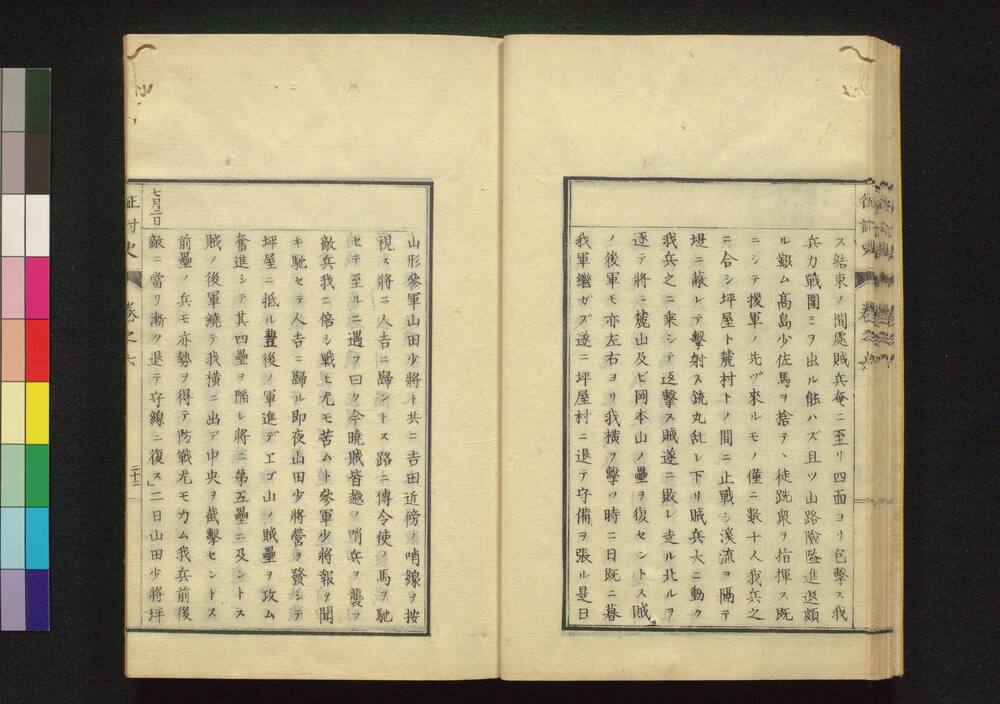 ス結束ノ間處賊兵奄ニ至リ四面ヨリ包擊ス我
兵力戰圍ミヲ出ル能ハズ且ツ山路險隘進退頗
ル艱ム髙島少佐馬ヲ捨テヽ徒跣衆ヲ指揮ス既
ニシテ援軍ノ先ヅ來ルモノ僅ニ數十人我兵之
ニ合シ坪屋ト麓村トノ間ニ止戰シ溪流ヲ隔テ
堤ニ蔽レテ擊射ス銃丸乱レ下リ賊兵大ニ動ク
我兵之ニ乘シテ返擊ス賊遂ニ敗レ走ル北ルヲ
逐テ將ニ麓山及ビ岡本山ノ壘ヲ復セントス賊
ノ後軍モ亦左右ヨリ我横ヲ擊ツ時ニ日既ニ暮
我軍繼ガズ遂ニ坪屋村ニ退テ守備ヲ張ル是日
山形參軍山田少將ト共ニ吉田近傍ノ哨線ヲ按
視ス將ニ人吉ニ歸ントス路ニ傳令使ノ馬ヲ馳
セテ至ルニ遇フ曰ク今曉賊皆越ノ哨兵ヲ襲フ
敵兵我ニ倍シ戰ヒ尤モ苦ムト參軍少將報ヲ聞
キ馳セテ人吉ニ歸ル即夜山田少將營ヲ發シテ
坪屋ニ抵ル豊後ノ軍進デヱゴ山ノ賊壘ヲ攻ム
奮進シテ其四壘ヲ陥レ將ニ第五壘ニ及ントス
賊ノ後軍繞テ我橫ニ出デ中央ヲ截擊セントス
前壘ノ兵モ亦勢ヲ得テ防戰尤モ力ム我兵前後
七月二日
敵ニ當リ漸ク退テ守線ニ復ス」二日山田少將坪
征討史
卷之六
二十二